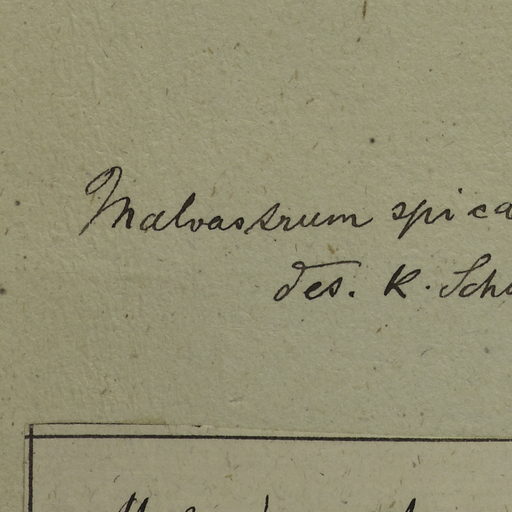 Malvastrum spica
des. K. Schu